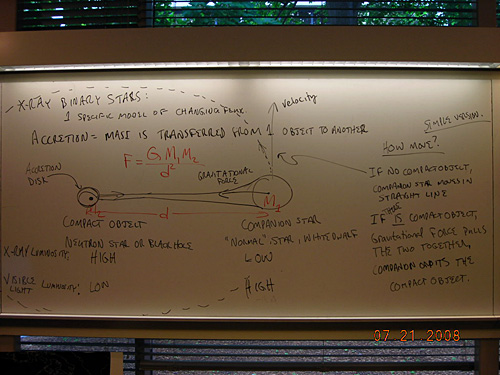 X-RAY BINARY STARS:
1 SPECIFIC MODEL OF CHANGING FLUX.
ACCRETION = MASS IS TRANSFERRED FROM 1 OBJECT TO ANOTHER
F = G M1 M2
d²
velocity
SIMPLE VERSION.
HOW MOVE?
IF NO COMPACT OBJECT,
COMPANION STAR MOVES IN
STRAIGHT LINE
THERE
IF IS COMPACT OBJECT,
Gravitational FORCE PULLS
THE TWO TOGETHER,
COMPANION ORBITS THE
COMPACT OBJECT.
ACCRETION
DISK
GRAVITATIONAL
FORCE
M2
d
M1
COMPACT OBJECT
COMPANION STAR
NEUTRON STAR OR BLACK HOLE
"NORMAL" STAR, WHITE DWARF
X-RAY LUMINOSITY: HIGH
LOW
VISIBLE
LIGHT LUMINOSITY: LOW
HIGH
07 21 2008